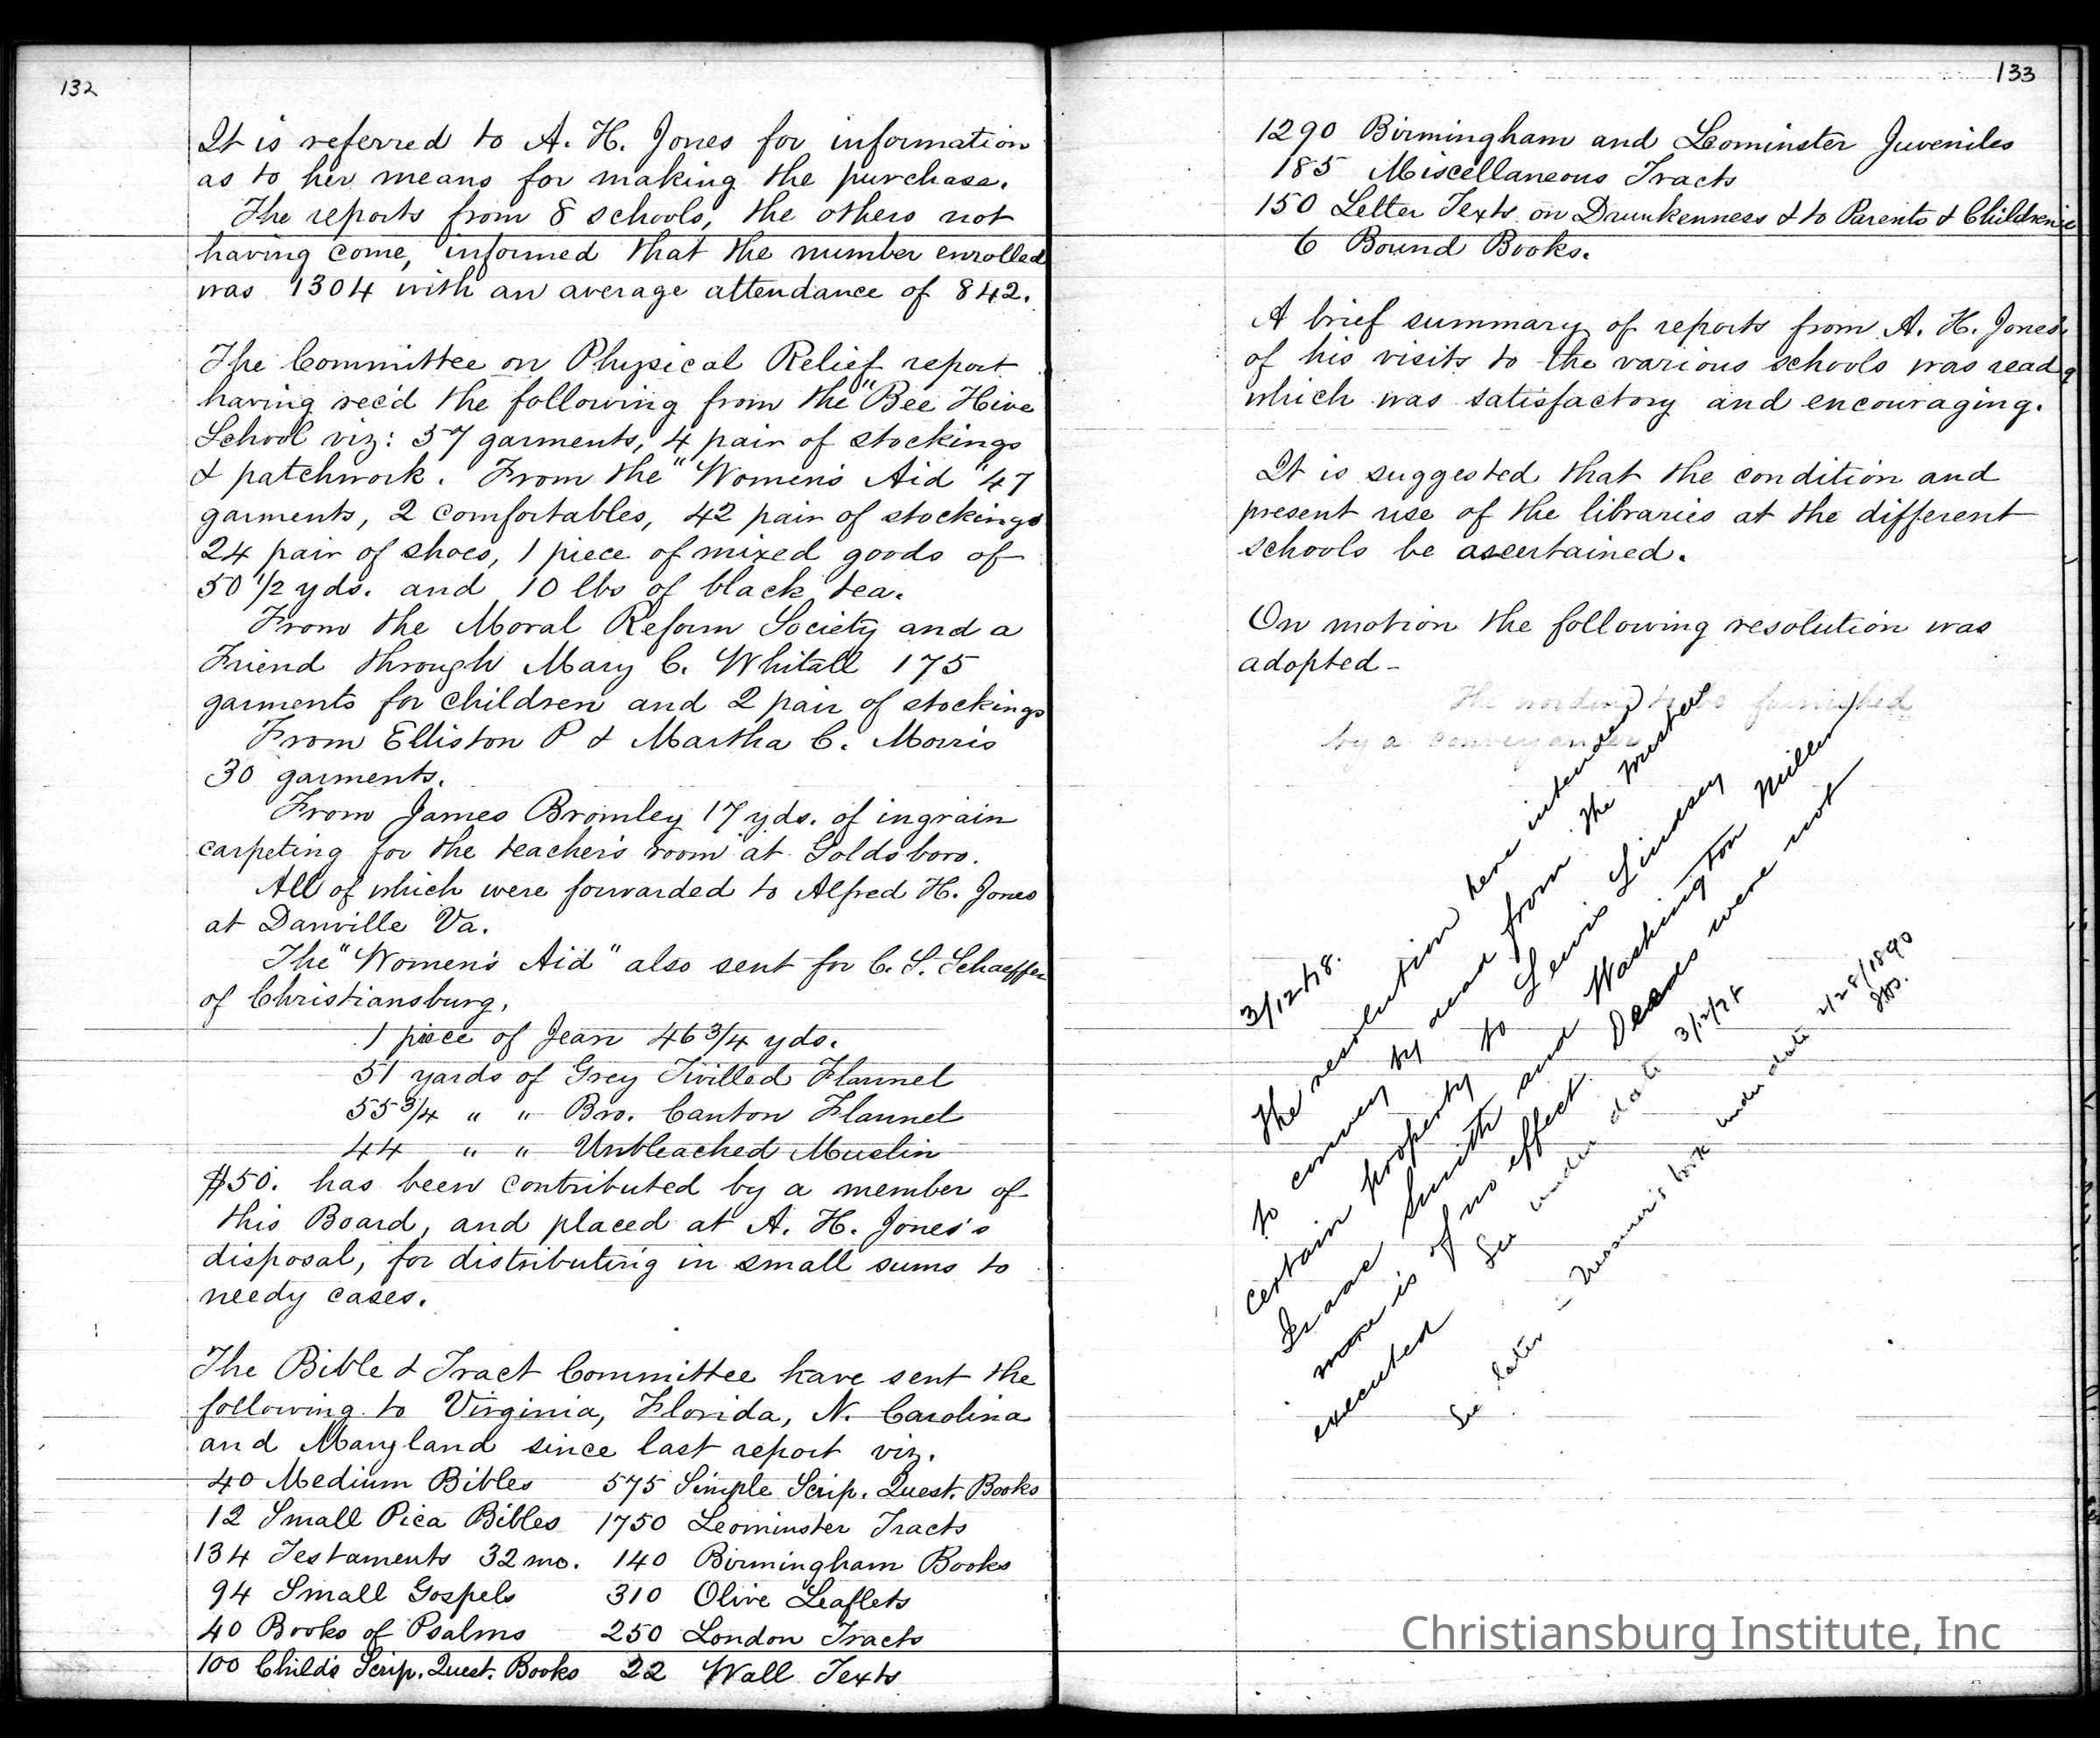 132
It is referred to A. H. Jones for information
as to her means for making the purchase.
The reports from 8 schools, the others not
having come, informed that the number enrolled
was 1304 with an average attendance of 842.
The Committee on Physical Relief report
having rec'd the following from the "Bee Hive
School viz: 57 garments, 4 pair of stockings
& patchwork. From the "Women's Aid" 47
garments, 2 comfortables, 42 pair of stockings
24 pair of shoes, 1 piece of mixed goods of
50 1/2 yds. and 10 lbs of black tea.
From the Moral Reform Society and a
Friend through Mary C. Whitall 175
garments for children and 2 pair of stockings
From Elliston P & Martha C. Morris
30 garments.
From James Bromley 17 yds. of ingrain
carpeting for the teacher's room at Goldsboro.
All of which were forwarded to Alfred H. Jones
at Danville Va.
The "Women's Aid" also sent for C. S. Schaeffer
of Christiansburg,
1 piece of Jean 46 3/4 yds.
51 yards of Grey Twilled Flannel
55 3/4 " " Bro. Canton Flannel
44 " " Unbleached Muslin
$50. has been contributed by a member of
this Board, and placed at A. H. Jones's
disposal, for distributing in small sums to
needy cases.
The Bible & Tract Committee have sent the
following to Virginia, Florida, N. Carolina
and Maryland since last report viz.
40 Medium Bibles 575 Simple Scrip. Quest. Books
12 Small Pica Bibles 1750 Leominster Tracts
134 Testaments 32 mo. 140 Birmingham Books
94 Small Gospels 310 Olive Leaflets
40 Books of Psalms 250 London Tracts
100 Child's Scrip. Quest. Books 22 Wall Texts
133
1290 Birmingham and Leominster Juveniles
185 Miscellaneous Tracts
150 Letter Texts on Drunkenness & to Parents & Children
6 Bound Books.
A brief summary of reports from A. H. Jones
of his visits to the various schools was read,
which was satisfactory and encouraging.
It is suggested that the condition and
present use of the libraries at the different
schools be ascertained.
On motion the following resolution was
adopted -
The wording to be furnished
by a conveyancer
3/12/78.
The resolution here intended
to convey by deed from the trustees
certain property to Lewis Lindsey
Isaac Smith and Washington Miller
more is of no effect Deeds were not
executed See under date 3/12/78
See later - Treasurer's book under date 2/28/1890
Christiansburg Institute, Inc